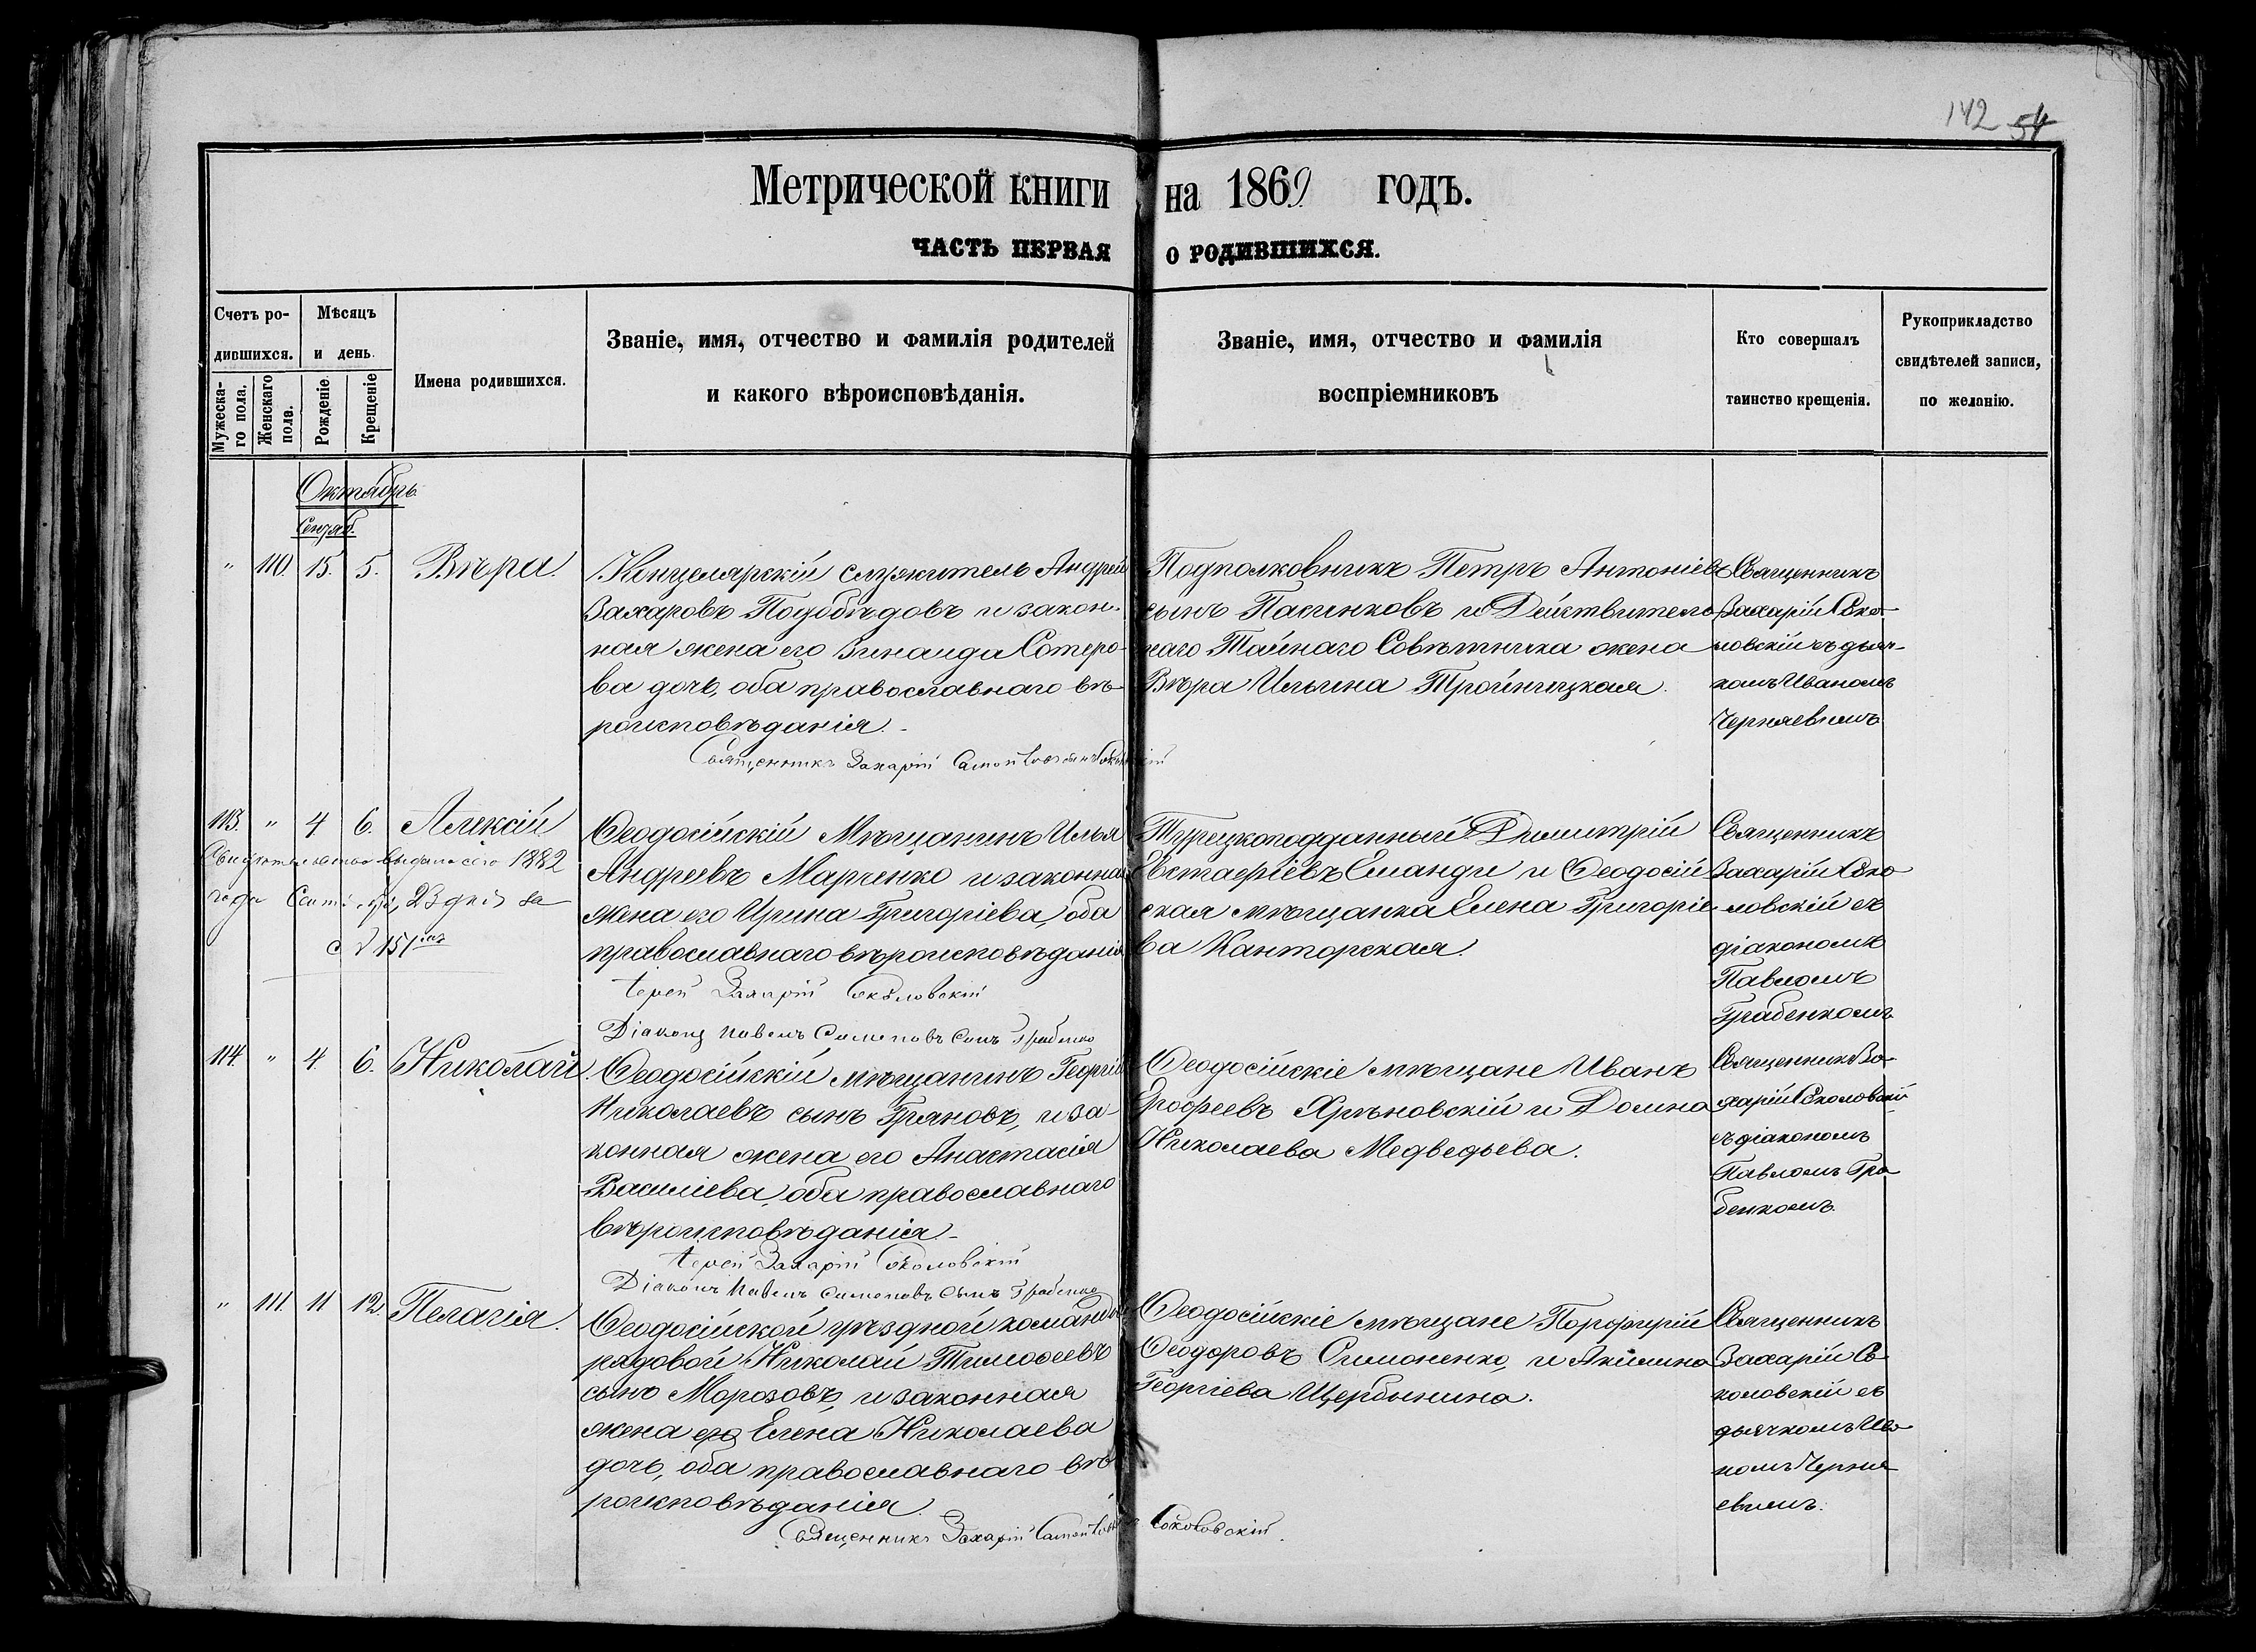 142 54
Метрической книги на 1869 годъ.
ЧАСТЬ ПЕРВАЯ О РОДИВШИХСЯ.
Счетъ ро-
дившихся.
Мужеска-
го пола.
Женскаго
пола.
Мѣсяцъ
и день.
Рожденіе.
Крещеніе
Имена родившихся.
Званіе, имя, отчество и фамилія родителей
и какого вѣроисповѣданія.
Званіе, имя, отчество и фамилія
воспріемниковъ
Кто совершалъ
таинство крещенія.
Рукоприкладство
свидѣтелей записи,
по желанію.
Октябрь
Сентяб.
" 110. 15. 5. Вѣра.
Канцелярскій служитель Андрей
Захаровъ Подобѣдовъ и закон-
ная жена его Зинаида Сотеро-
ва дочь, оба православнаго вѣ-
роисповѣданія.
Священникъ Захарій
Подполковникъ Петръ Антоніевъ
сынъ Пасинковъ и Действитель
наго Тайнаго Совѣтника жена
Вѣра Ильина Тройницкая.
Священникъ
Захарій Соко-
ловскій съ дьяч-
комъ Иваномъ
Черняевымъ
113. " 4 6. Алексій
Свидѣтельство выдано сего 1882
года 23 дня за
№ 151
Ѳеодосійскій Мѣщанинъ Илья
Андреевъ Марченко и законная
жена его Ирина Григоріева, оба
православнаго вѣроисповѣданія
Іерей Захарій Соколовскій
Діаконъ Павелъ Симеоновъ Сынъ Грабенко
Турецкоподданный Димитрій
Евстафіевъ Еманди и Ѳеодосій
ская мѣщанка Елена Григоріе
ва Канторская.
Священникъ
Захарій Соко
ловскій съ
діакономъ
Павломъ
Грабенкомъ
114. " 4. 6. Николай.
Ѳеодосійскій мѣщанинъ Георгій
Николаевъ сынъ Грановъ, и за-
конная жена его Анастасія
Василіева, оба православнаго
вѣроисповѣданія
Іерей Захарій Соколовскій
Діаконъ Павелъ Симеоновъ Сынъ Грабенко
Ѳеодосійскіе мѣщане Иванъ
Ерофеевъ Хрѣновскій и Домна
Николаева Медведьева.
Священникъ За-
харій Соколовскій
съ діакономъ
Павломъ Гра
бенкомъ.
" 111. 11 12. Пелагія.
Ѳеодосійской уѣздной команды
рядовой Николай Тимоѳеевъ
сынъ Морозовъ, и законная
жена его Елена Николаева
дочь, оба православнаго вѣ
роисповѣданія.
Священникъ Захарій Соколовскій.
Ѳеодосійскіе мѣщане Порфирій
Ѳеодоровъ Симоненко, и Акилина
Георгіева Щербынина.
Священникъ
Захарій Со
коловскій съ
дьячкомъ Ива
номъ Черня
евымъ.